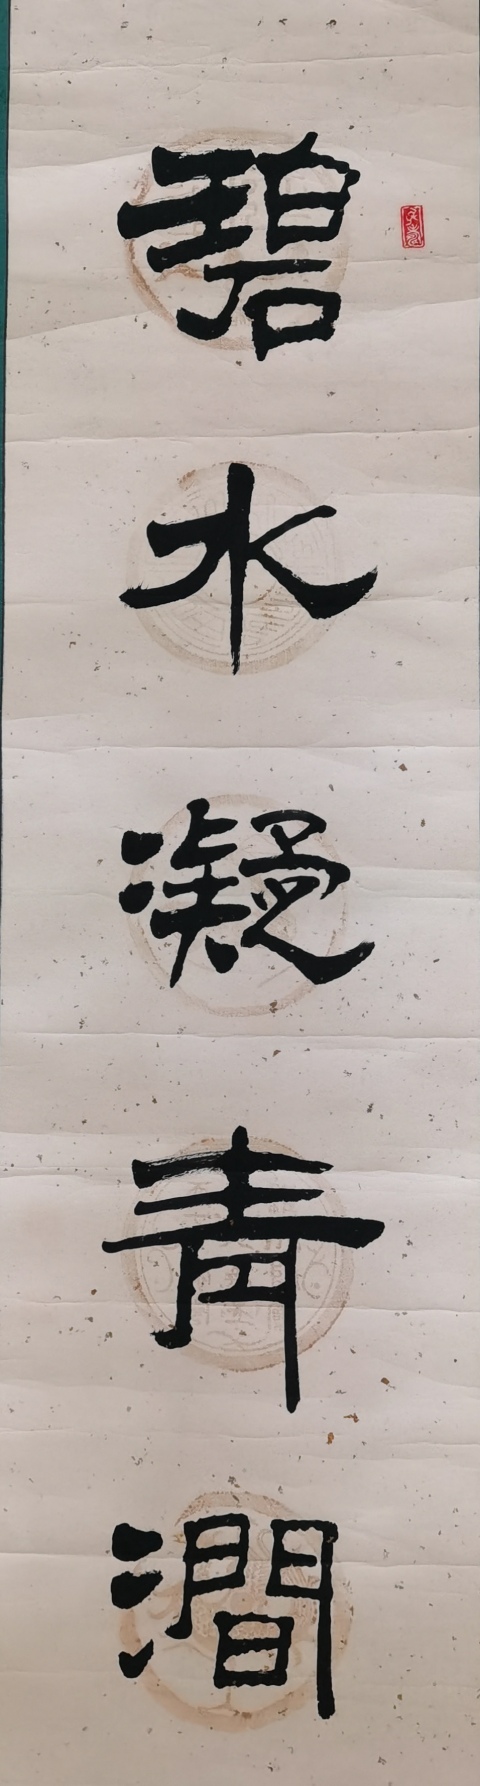 碧水凝青澗